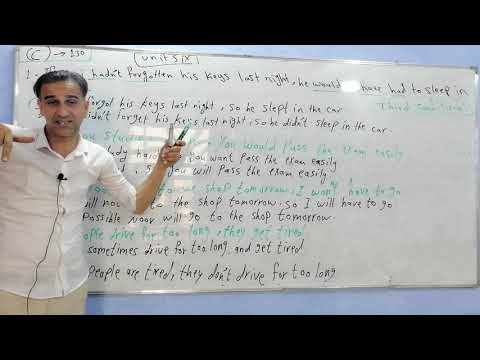 (C) → 130
unit six
1- hadn't forgotten his keys last night, he would have had to sleep in
Third conditional
forgot his keys last night, so he slept in the car
didn't forget his keys last night, so he didn't sleep in the car
you would pass the exam easily
you want pass the exam easily
, so you will pass the exam easily
shop tomorrow, I won't have to go
to the shop tomorrow, so I will have to go
possible Noor will go to the shop tomorrow
drive for too long, they get tired
sometimes drive for too long and get tired
people are tired, they don't drive for too long